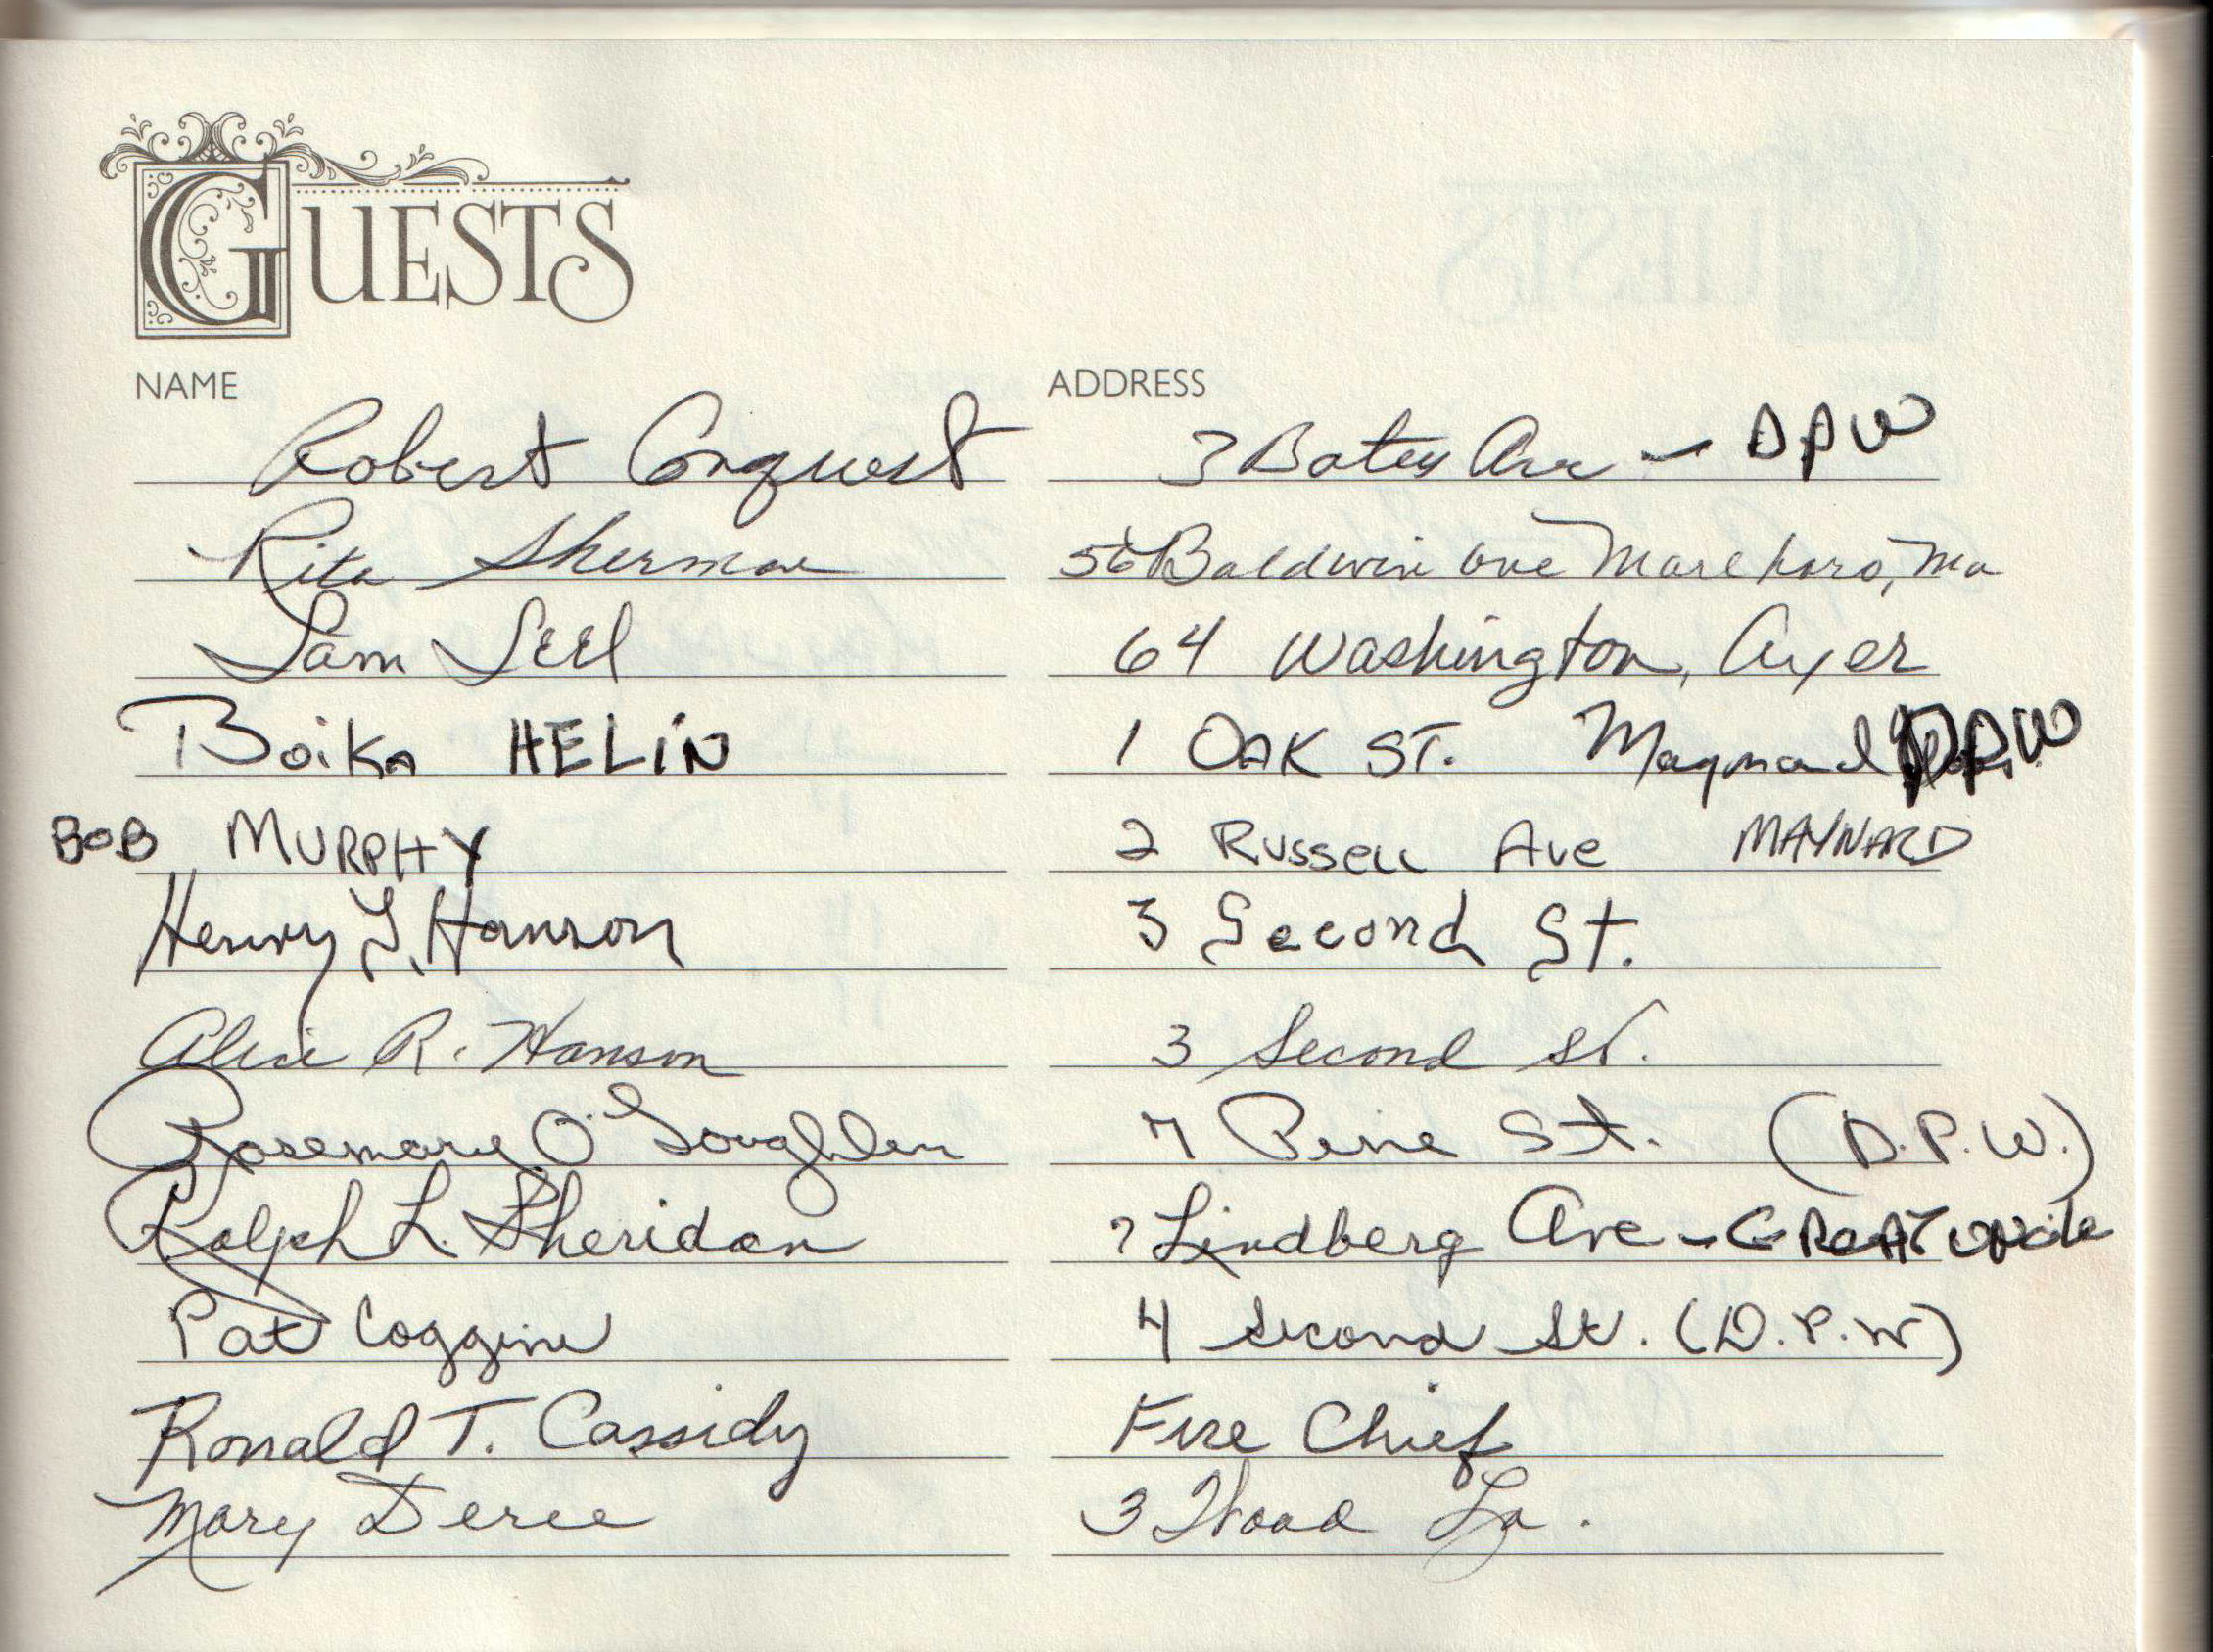 GUESTS
NAME ADDRESS
Robert Conquest 3 Bates Ave - DPW
Rita Sherman 56 Baldwin ave Marlboro, Ma
Sam Seel 64 Washington, Ayer
Boika HELIN 1 OAK ST. Maynard DPW
BOB MURPHY 2 Russell Ave MAYNARD
Henry L. Hanson 3 Second St.
Alice R. Hanson 3 Second St.
Rosemary O'Loughlen 7 Pine St. (D.P.W.)
Ralph L. Sheridan 7 Lindberg Ave - GREAT UNCLE
Pat Coggins 4 Second St. (D.P.W)
Ronald T. Cassidy Fire Chief
Mary 3 Wood La.